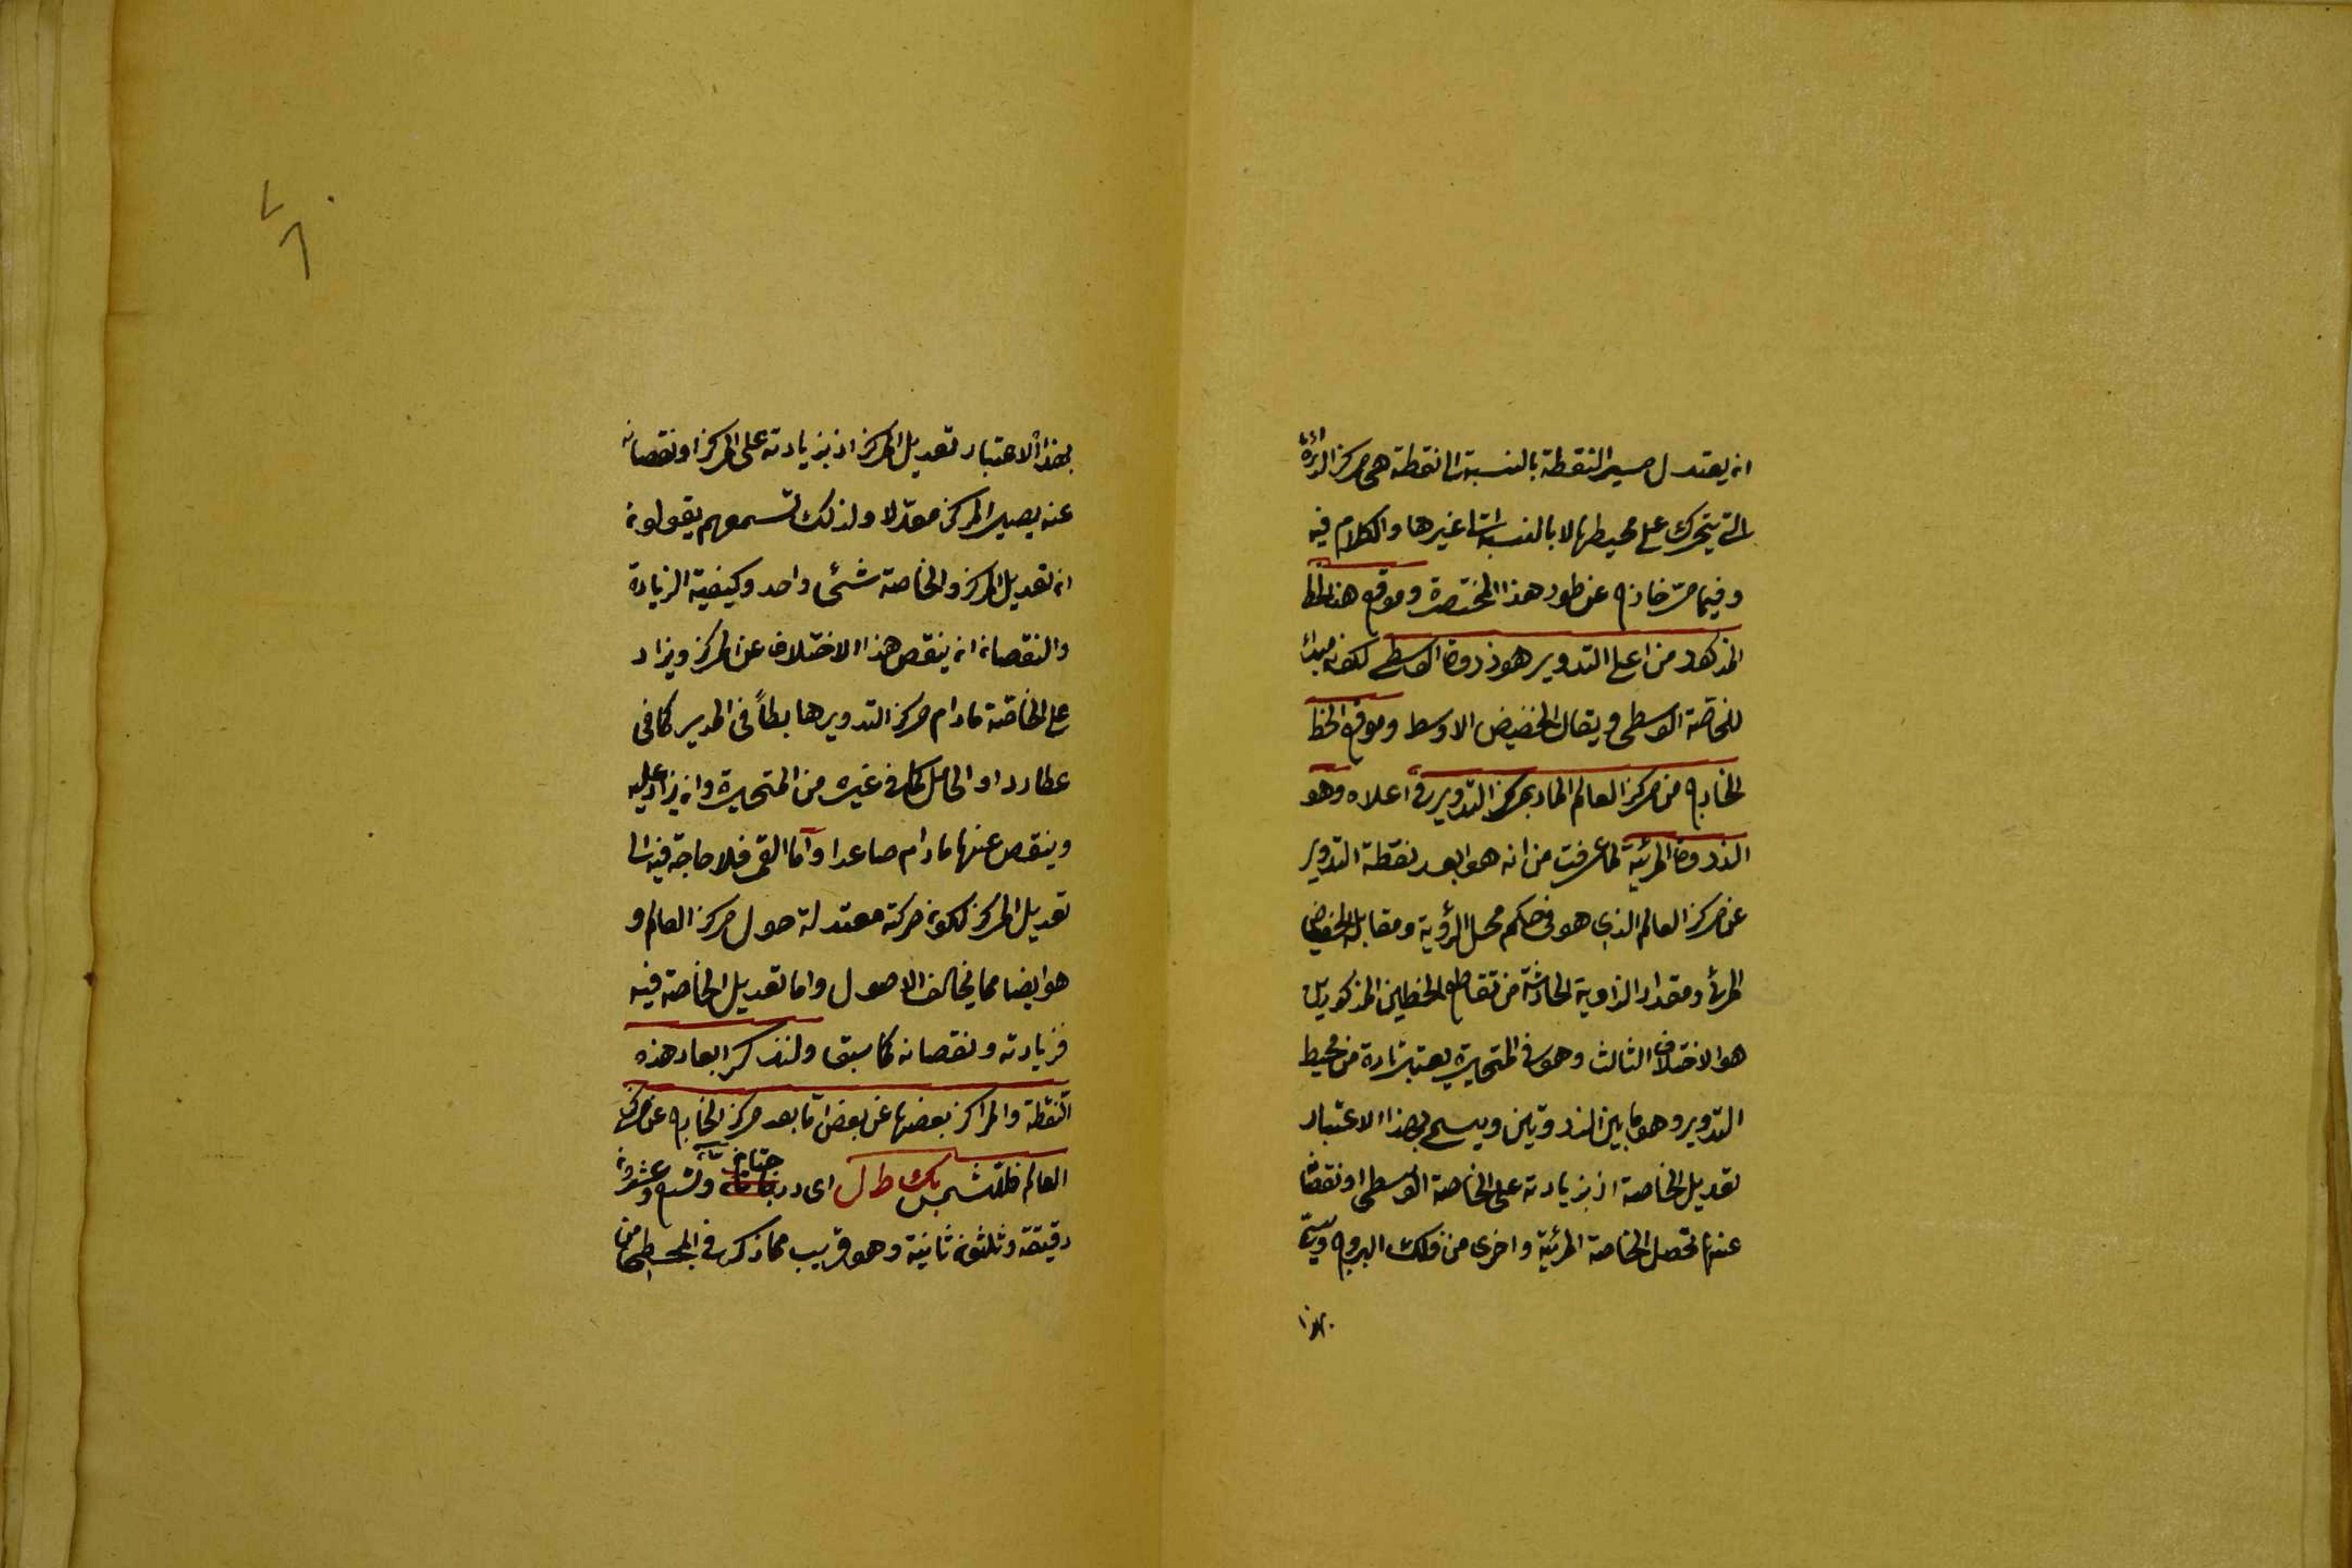 ان يعتدل مسير النقطة بالنسبة الى نقطة هى مركز الدائرة
التى يتحرك على محيطها لا بالنسبة الى غيرها والكلام فيه
وفيما مر خارج عن طور هذا المختصر وموقع هذا الخط
المذكور من اعلى التدوير هو ذروة الوسطى لكونه مبدأ
للخاصّة الوسطى ويقال الحضيض الاوسط وموقع الخط
الخارج من مركز العالم المار بمركز التدوير فى اعلاه وهو
الذروة المرئية لما عرفت من انه هو ابعد نقطة التدوير
عن مركز العالم الذى هو فى حكم محل الرؤية ومقابله الحضيض
المرئى ومقدار الزاوية الحادثة من تقاطع الخطين المذكورين
هو الاختلاف الثالث وهو فى المتحيرة يعتبر تارة من محيط
التدوير وهو ما بين الذروتين ويسمى بهذا الاعتبار
تعديل الخاصة اذ بزيادته على الخاصة الوسطى او نقصانه
عنها تحصل الخاصة المرئية واخرى من فلك البروج ويسمّى
بهذا
بهذا الاعتبار تعديل المركز اذ بزيادته على المركز او نقصانه
عنه يصير المركز معدّلا ولذلك تسمعهم يقولون
ان تعديل المركز والخاصة شئ واحد وكيفية الزيادة
والنقصان ان ينقص هذا الاختلاف عن المركز ويزاد
على الخاصّة مادام مركز التدوير هابطاً فى المدير كما فى
عطارد او الحامل كما فى غيره من المتحيرة وان يزاد عليه
وينقص عنها مادام صاعدا وأما القمر فلا حاجة فيه الى
تعديل المركز لكون حركته معتدلة حول مركز العالم و
هو ايضا مما يخالف الاصول واما تعديل الخاصة فيه
فزيادته ونقصانه كما سبق ولنذكر ابعاد هذه
النقطة والمراكز بعضها عن بعض امّا بعد مركز الخارج عن مركز
العالم فللشمس ب كط ل اى درجتان وتسع وعشرون
دقيقة وثلثون ثانية وهو قريب مما ذكر فى المجسطى من